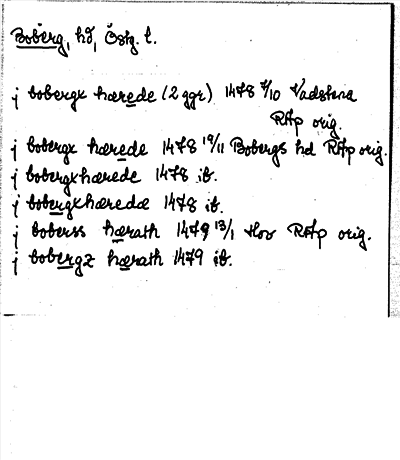 Boberg, hd, Östg. l.
j bobergx hærede (2 ggr) 1478 7/10 Vadstena
RAp orig.
j bobergx hærede 1478 19/11 Bobergs hd RAp orig.
j bobergxhærede 1478 ib.
j bobergxhæredæ 1478 ib.
j boberss hærath 1479 13/1 Hov RAp orig.
j bobergz hærath 1479 ib.